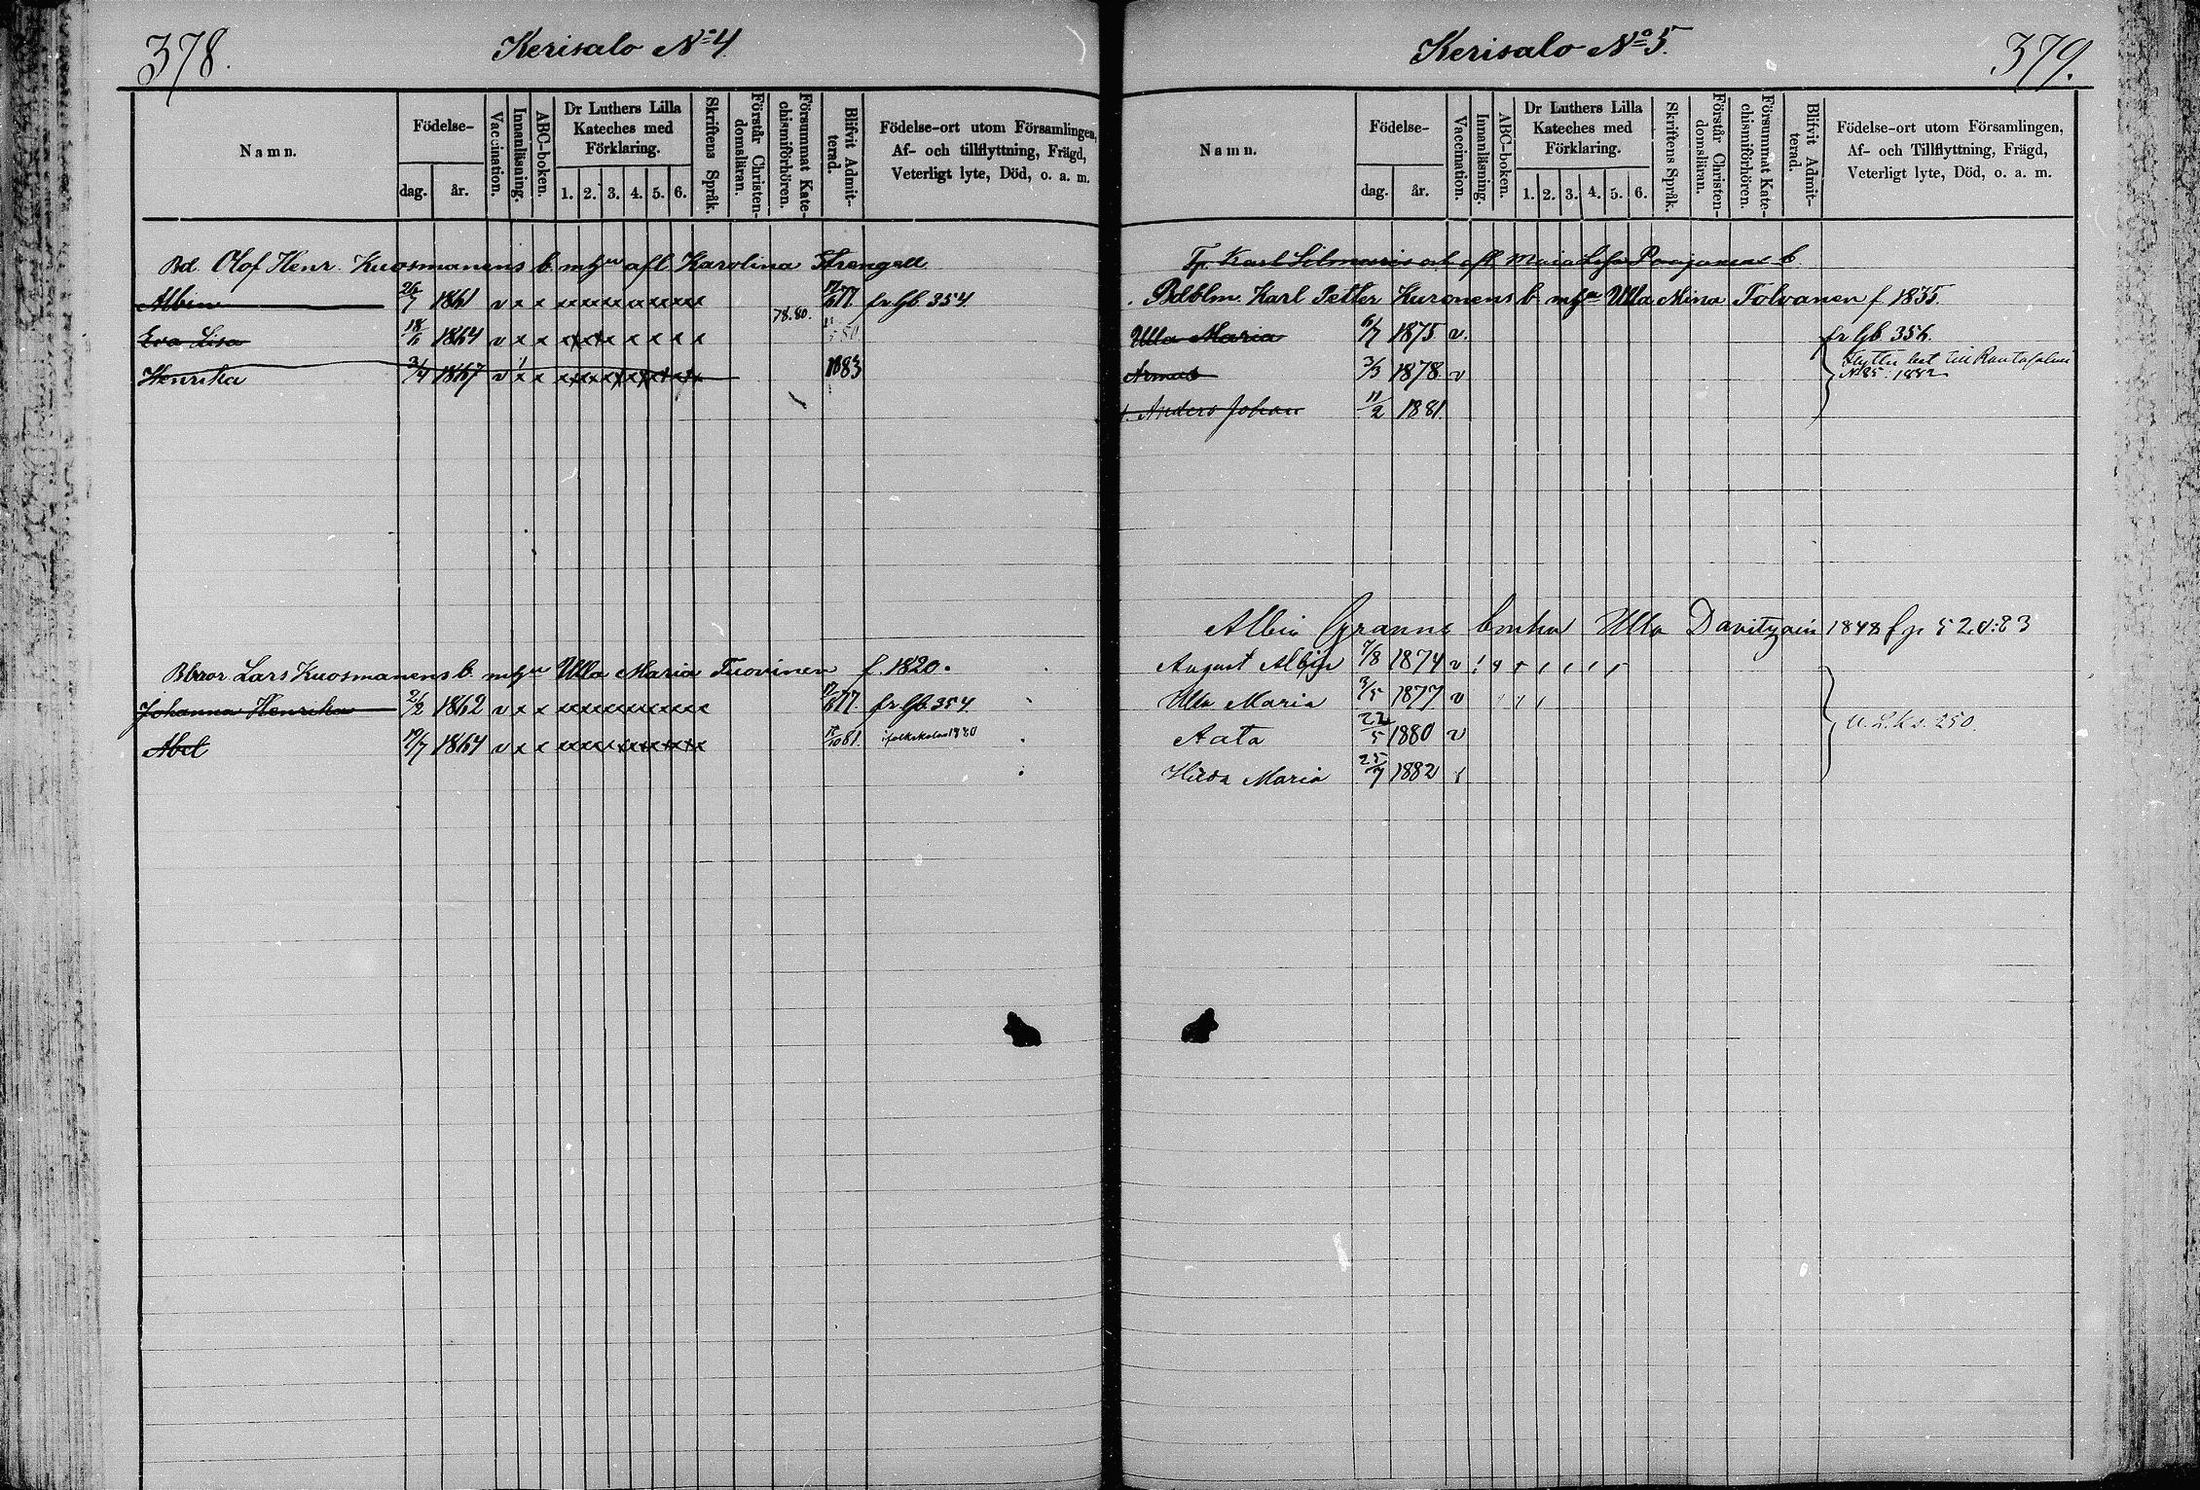 378.
Kerisalo No 4.
Namn.
Födelse-
dag.
år.
Vaccination.
Innanläsning.
ABC-boken.
Dr Luthers Lilla
Kateches med
Förklaring.
1. 2. 3. 4. 5. 6.
Skriftens Språk.
Förstår Christen-
domsläran.
Försummat Kate-
chismiförhören.
Blifvit Admit-
terad.
Födelse-ort utom Församlingen,
Af- och tillflyttning, Frägd,
Veterligt lyte, Död, o. a. m.
Bd. Olof Henr. Kuosmanens b. m hu afl. Karolina Strengell
Albin 26/7 1861 v x x x x x x x x x x 77. fr. Gb. 354
78. 80.
Eva Lisa 1864 v x x x x x x x x x
Henrika 3/4 1867 v x x 1883
Bbror Lars Kuosmanens b. m hu Ulla Maria Tuovinen f. 1820.
Johanna Henrika 2/2 1862 v x x 77. fr. Gb. 354
Abel 19/7 1864 v x x 81. i folkskolan 1880
379.
Kerisalo No 5.
Namn.
Födelse-
dag.
år.
Vaccination.
Innanläsning.
ABC-boken.
Dr Luthers Lilla
Kateches med
Förklaring.
1. 2. 3. 4. 5. 6.
Skriftens Språk.
Förstår Christen-
domsläran.
Försummat Kate-
chismiförhören.
Blifvit Admit-
terad.
Födelse-ort utom Församlingen,
Af- och Tillflyttning, Frägd,
Veterligt lyte, Död, o. a. m.
Tp. Karl afl. Maria b.
Bdblm. Karl Petter Kuronens b. m hu Ulla Mina Tolvanen f. 1835.
Ulla Maria 6/7 1875 v. fr. Gb. 356.
3/3 1878 v till Rantasalmi
1882
Anders Johan 11/2 1881.
Albin Granns Ulla 1848
August Albin 7/8 1874 v
Ulla Maria 3/5 1877 v
Aata 22/5 1880 v 250.
Hilda Maria 25/7 1882